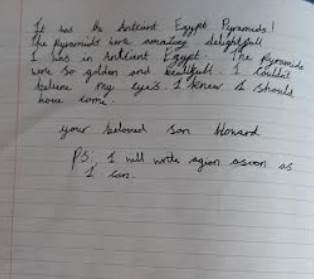 It was the Antciant Egypt Pyramids!
The Pyramids were amazing delightfull
I was in Antciant Egypt. The pyramids
were so golden and beautifull. I couldn't
beleive my eyes. I knew I should
have come.
your beloved son Howard
PS; I will write agion asoon as
I can.